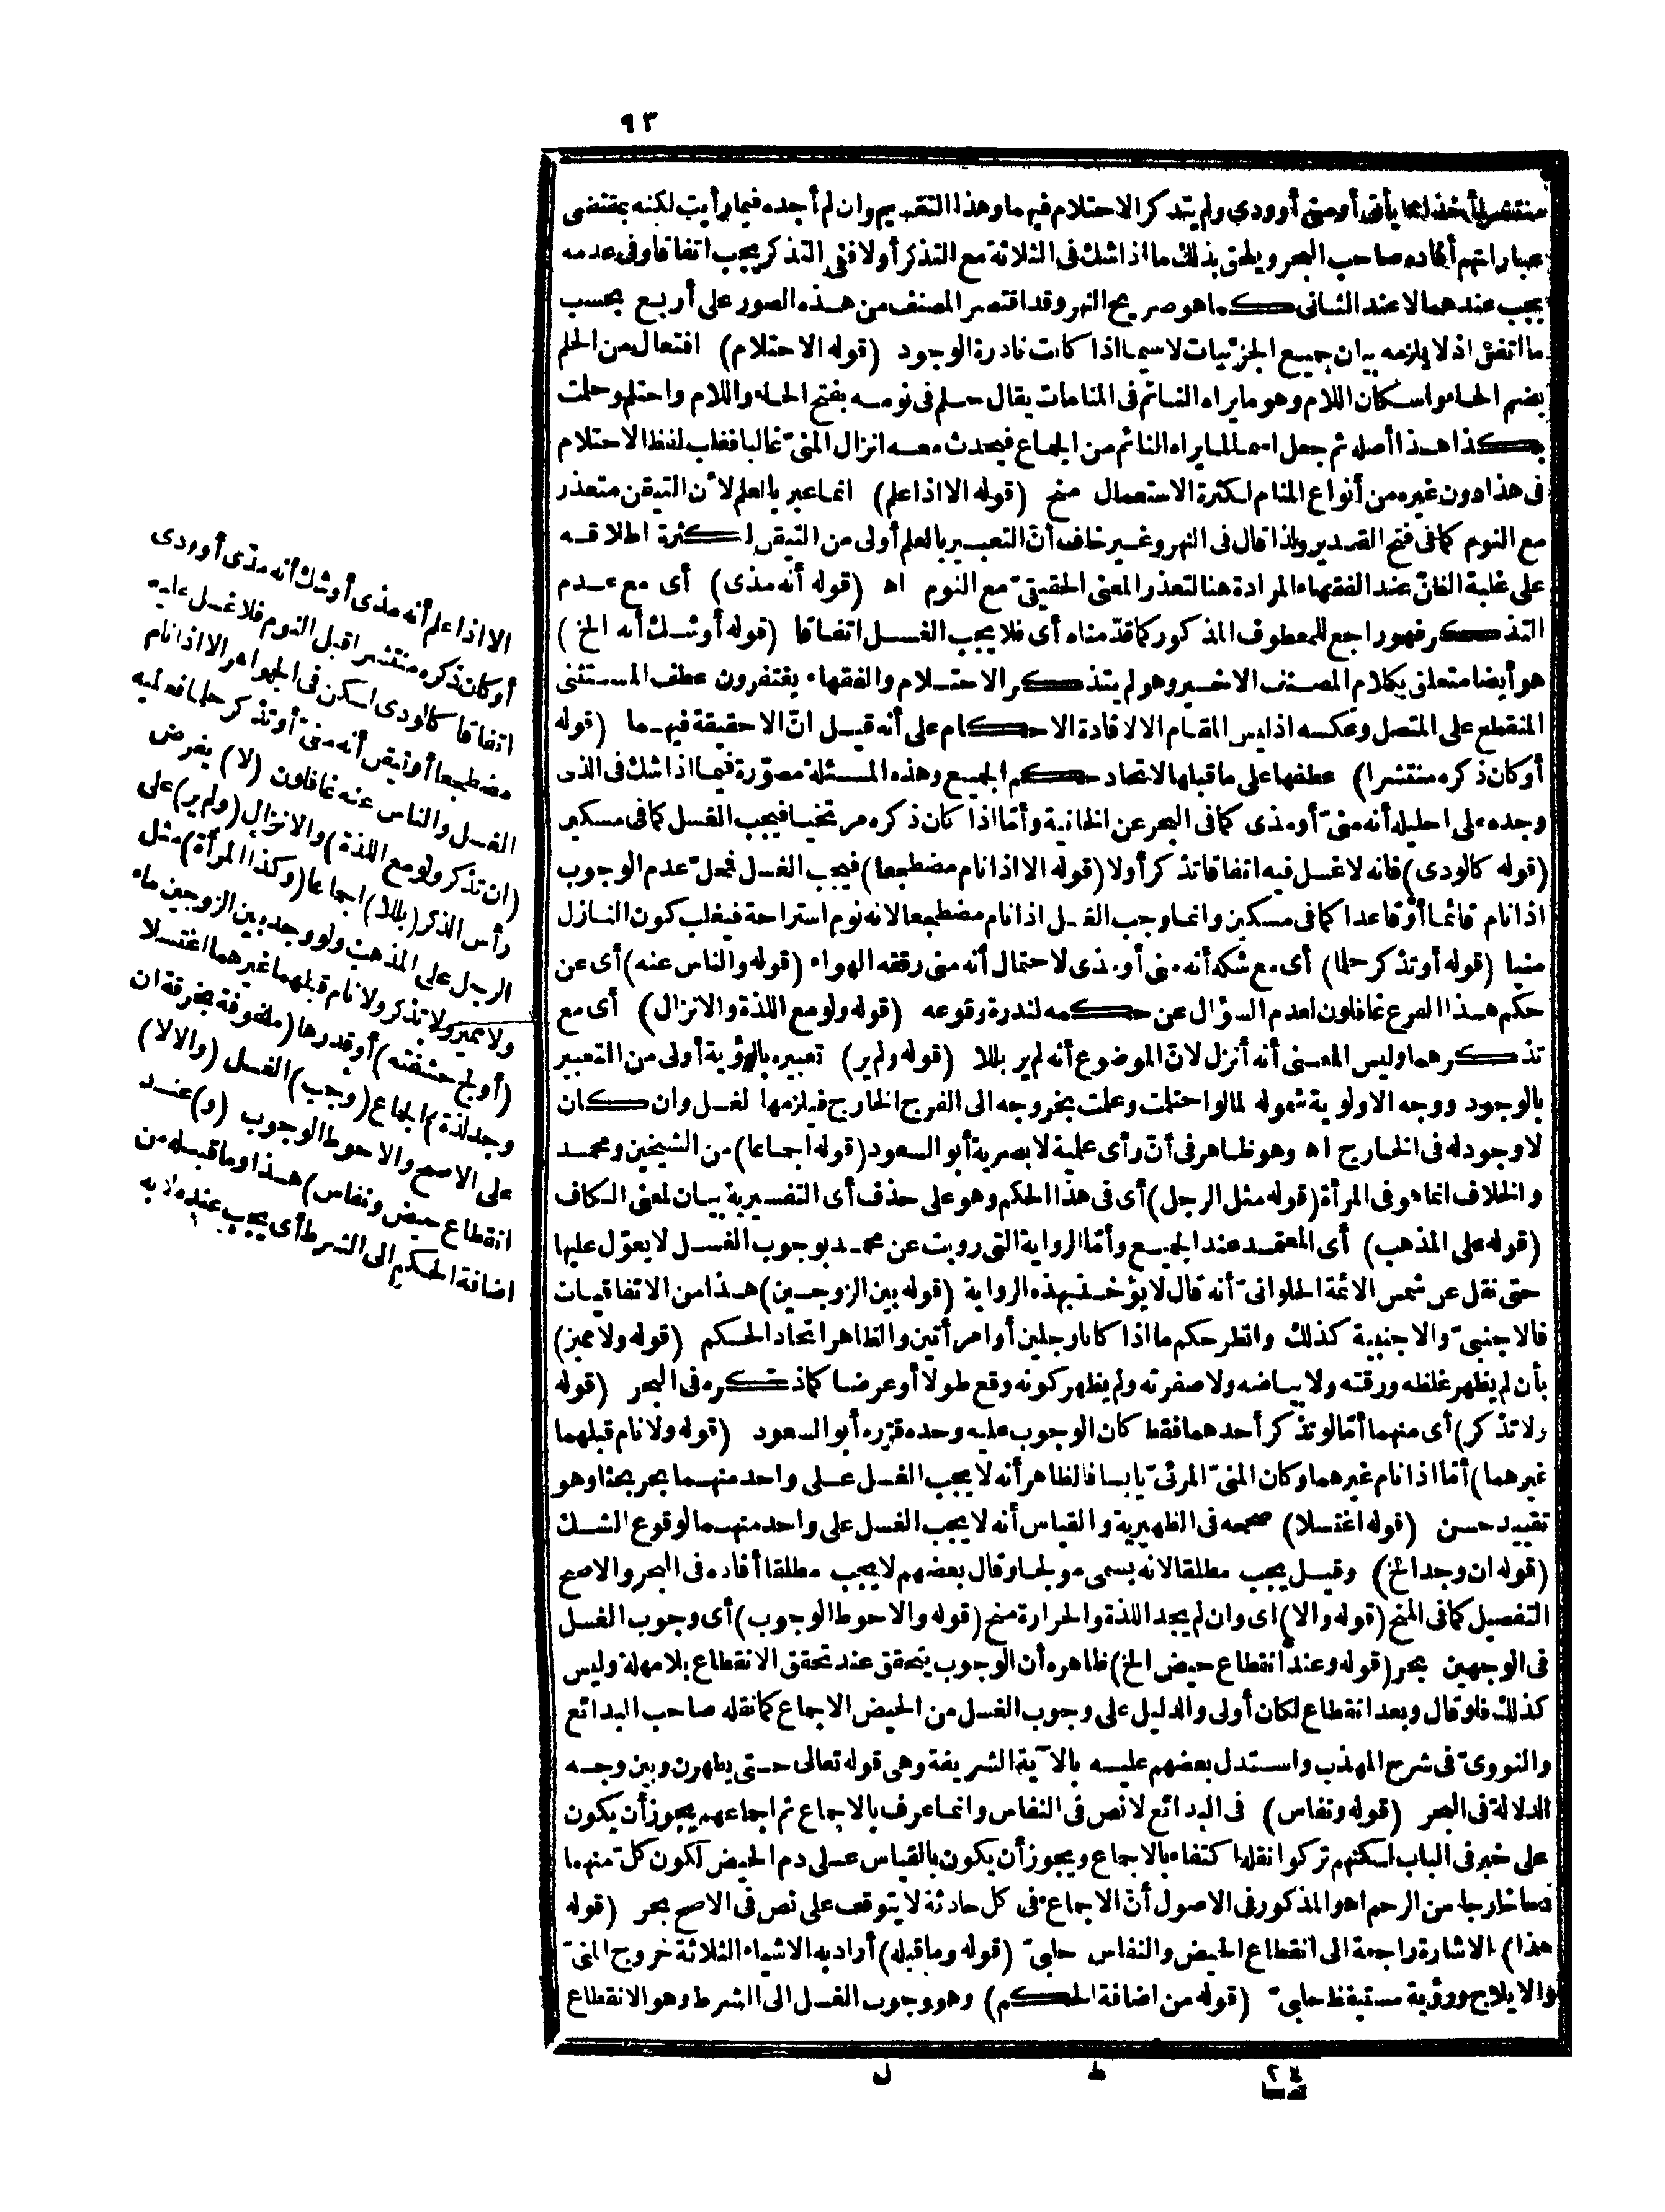 ٩٣
منتشرا أخذا مما يأتى أو منى أو ودى ولم يتذكر الاحتلام فيهما وهذا التقسيم وان لم أجده فيما رأيت لكنه بمقتضى
عباراتهم أفاده صاحب البحر ويلحق بذلك ما اذا شك فى الثلاثة مع التذكر أولا ففى التذكر يجب اتفاقا وفى عدمه
يجب عندهما لا عند الثانى كما هو صريح النهر وقد اقتصر المصنف من هذه الصور على أربع بحسب
ما اتفق اذ لا يلزمه بيان جميع الجزئيات لا سيما اذا كانت نادرة الوجود (قوله الاحتلام) افتعال من الحلم
بضم الحاء واسكان اللام وهو ما يراه النائم فى المنامات يقال حلم فى نومه بفتح الحاء واللام واحتلم وحلمت
بكذا هذا أصله ثم جعل اسما لما يراه النائم من الجماع فيحدث معه انزال المنىّ غالبا فغلب لفظ الاحتلام
فى هذا دون غيره من أنواع المنام لكثرة الاستعمال منح (قوله الا اذا علم) انما عبر بالعلم لأن التيقن متعذر
مع النوم كما فى فتح القدير ولذا قال فى النهر وغير خاف أنّ التعبير بالعلم أولى من التيقن لكثرة اطلاقه
على غلبة الظنّ عند الفقهاء المرادة هنا لتعذر المعنى الحقيقىّ مع النوم اه (قوله أنه مذى) أى مع عدم
التذكر فهو راجع للمعطوف المذكور كما قدّمناه أى فلا يجب الغسل اتفاقا (قوله أو شك أنه الخ)
هو أيضا متعلق بكلام المصنف الاخير وهو لم يتذكر الاحتلام والفقهاء يغتفرون عطف المستثنى
المنقطع على المتصل وعكسه اذ ليس المقام الا لافادة الاحكام على أنه قيل انّ الاحقيقة فيهما (قوله
أو كان ذكره منتشرا) عطفها على ما قبلها لاتحاد حكم الجميع وهذه المسئلة مصوّرة فيما اذا شك فى الذى
وجده على احليله أنه منىّ أو مذى كما فى البحر عن الخانية وأمّا اذا كان ذكره مرتخيا فيجب الغسل كما فى مسكين
(قوله كالودى) فانه لا غسل فيه اتفاقا تذكر أولا (قوله الا اذا نام مضطجعا) فيجب الغسل فمحلّ عدم الوجوب
اذا نام قائما أو قاعدا كما فى مسكين وانما وجب الغسل اذا نام مضطجعا لانه نوم استراحة فيغلب كون النازل
منيا (قوله أو تذكر حلما) أى مع شكه أنه منى أو مذى لاحتمال أنه منى رققه الهواء (قوله والناس عنه) أى عن
حكم هذا الفرع غافلون لعدم السؤال عن حكمه لندرة وقوعه (قوله ولو مع اللذة والانزال) أى مع
تذكرهما وليس المعنى أنه أنزل لانّ الموضوع أنه لم ير بللا (قوله ولم ير) تعبيره بالرؤية أولى من التعبير
بالوجود ووجه الاولوية شموله لما لو احتلمت وعلمت بخروجه الى الفرج الخارج فيلزمها لغسل وان كان
لا وجود له فى الخارج اه وهو ظاهر فى أنّ رأى علمية لا بصرية أبو السعود (قوله اجماعا) من الشيخين ومحمد
والخلاف انما هو فى المرأة (قوله مثل الرجل) أى فى هذا الحكم وهو على حذف أى التفسيرية بيان لمعنى الكاف
(قوله على المذهب) أى المعتمد عند الجميع وأمّا الرواية التى رويت عن محمد بوجوب الغسل لا يعوّل عليها
حتى نقل عن شمس الائمة الحلوانىّ أنه قال لا يؤخذ بهذه الرواية (قوله بين الزوجين) هذا من الاتفاقيات
فالاجنبىّ والاجنبية كذلك وانظر حكم ما اذا كانا رجلين أو امرأتين والظاهر اتحاد الحكم (قوله ولا مميز)
بأن لم يظهر غلظه ورقته ولا بياضه ولا صفرته ولم يظهر كونه وقع طولا أو عرضا كما ذكره فى البحر (قوله
ولا تذكر) أى منهما أمّا لو تذكر أحدهما فقط كان الوجوب عليه وحده قرّره أبو السعود (قوله ولا نام قبلهما
غيرهما) أمّا اذا نام غيرهما وكان المنىّ المرئىّ يابسا فالظاهر أنه لا يجب الغسل على واحد منهما بحر بحثا وهو
تقييد حسن (قوله اغتسلا) صححه فى الظهيرية والقياس أنه لا يجب الغسل على واحد منهما لوقوع الشك
(قوله ان وجد الخ) وقيل يجب مطلقا لانه يسمى مولجا وقال بعضهم لا يجب مطلقا أفاده فى البحر والاصح
التفصيل كما فى المنح (قوله والا) اى وان لم يجد اللذة والحرارة منح (قوله والاحوط الوجوب) أى وجوب الغسل
فى الوجهين بحر (قوله وعند انقطاع حيض الخ) ظاهره أن الوجوب يتحقق عند تحقق الانقطاع بلا مهلة وليس
كذلك فلو قال وبعد انقطاع لكان أولى والدليل على وجوب الغسل من الحيض الاجماع كما نقله صاحب البدائع
والنووىّ فى شرح المهذب واستدل بعضهم عليه بالآية الشريفة وهى قوله تعالى حتى يطهرن وبين وجه
الدلالة فى البحر (قوله ونفاس) فى البدائع لا نص فى النفاس وانما عرف بالاجماع ثم اجماعهم يجوز أن يكون
على خبر فى الباب لكنهم تركوا نقله اكتفاء بالاجماع ويجوز أن يكون بالقياس على دم الحيض لكون كلّ منهما
دما خارجا من الرحم اه والمذكور فى الاصول أنّ الاجماع فى كل حادثة لا يتوقف على نص فى الاصح بحر (قوله
هذا) الاشارة راجعة الى انقطاع الحيض والنفاس حلبىّ (قوله وما قبله) أراد به الاشياء الثلاثة خروج المنىّ
والايلاج ورؤية مستيقظ حلبىّ (قوله من اضافة الحكم) وهو وجوب الغسل الى الشرط وهو الانقطاع
الا اذا علم أنه مذى أو شك أنه مذى أو ودى
أو كان ذكره منتشرا قبل النوم فلا غسل عليه
اتفاقا كالودى لكن فى الجواهر الا اذا نام
مضطجعا أو تيقن أنه منىّ أو تذكر حلما فعليه
الغسل والناس عنه غافلون (لا) يفرض
(ان تذكر ولو مع اللذة) والانزال (ولم ير) على
رأس الذكر (بللا) اجماعا (وكذا المرأة) مثل
الرجل على المذهب ولو وجد بين الزوجين ماء
ولا مميز ولا تذكر ولا نام قبلهما غيرهما اغتسلا
(أولج حشفته) أو قدرها (ملفوفة بخرقة ان
وجد لذة) الجماع (وجب) الغسل (والا لا)
على الاصح والاحوط الوجوب (و) عند
انقطاع حيض ونفاس) هذا وما قبله من
اضافة الحكم الى الشرط أى يجب عنده لا به
٢٤ ط ل